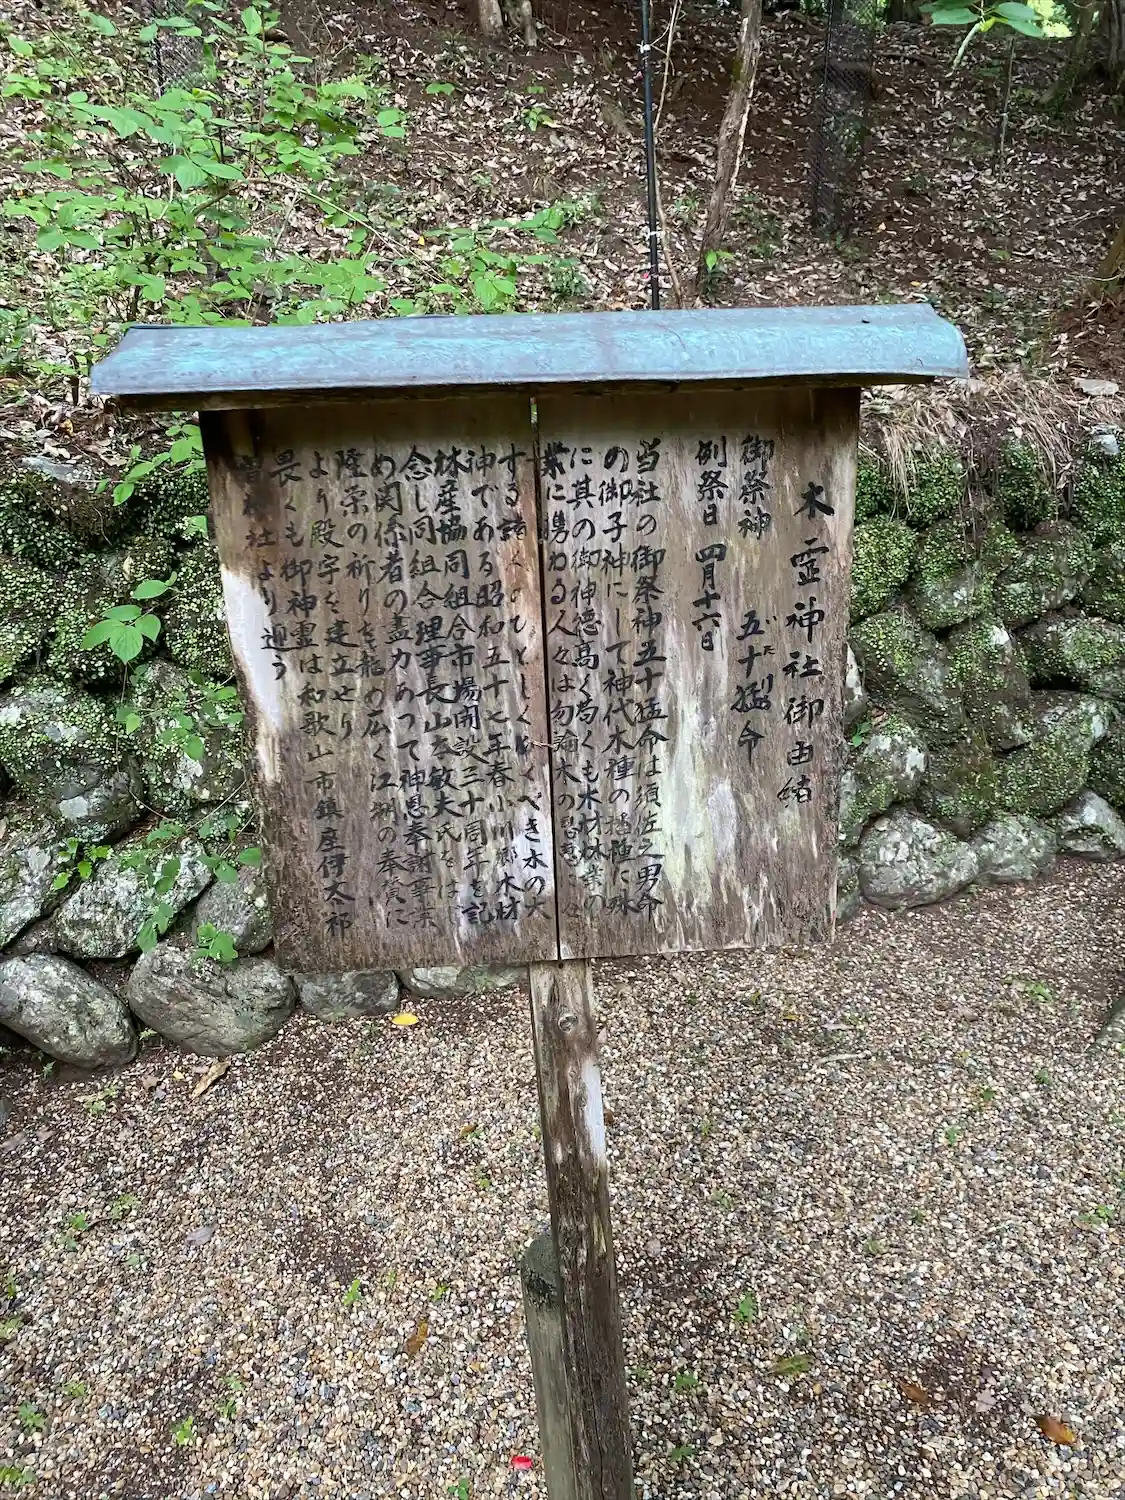 木霊神社御由緒
御祭神 五十猛命
例祭日 四月十六日
当社の御祭神五十猛命は須佐之男命
の御子神にして神代木種の播種に殊
に其の御神徳高く尚くも木材林業の
業に携わる人々は勿論木の恩恵に
する諸 のひとしく べき木の大
神である昭和五十七年春小川郷木材
林産協同組合市場開設三十周年を記
念し同組合理事長山本敏夫氏をはじ
め関係者の盡力あつて神恩奉謝事業
隆栄の祈りを籠め広く江湖の奉賛に
より殿宇を建立せり
畏くも御神霊は和歌山市鎮座伊太祁
曽神社より迎う